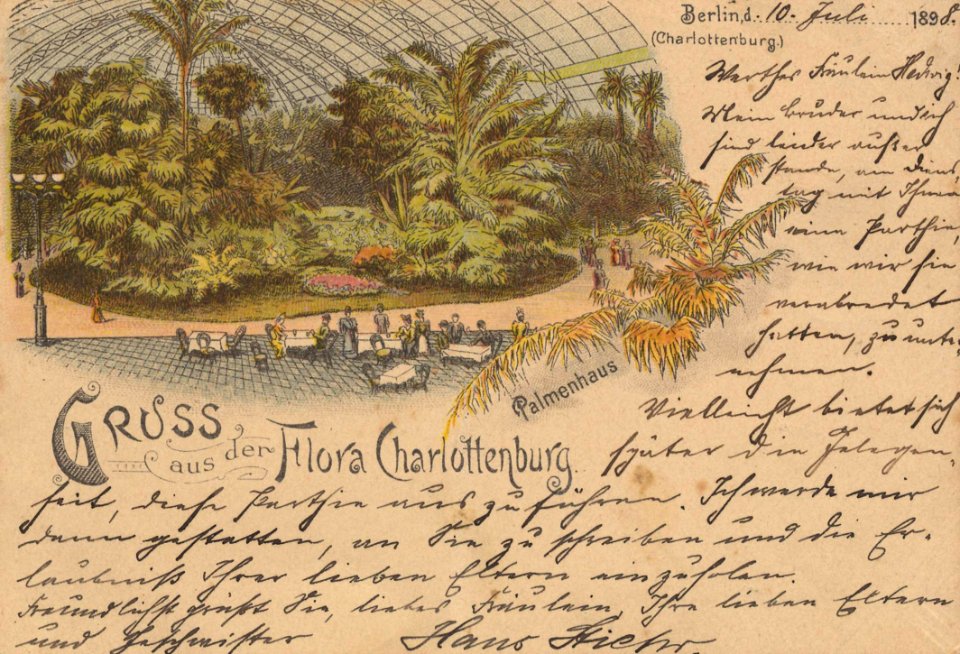 Berlin, d. 10. Juli 1898.
(Charlottenburg.)
Werthes Fräulein Hedwig!
Mein Bruder und ich
sind leider außer
stande, am Diens-
tag mit Ihnen
eine Parthie,
wie wir sie
verabredet
hatten, zu unter-
nehmen.
Vielleicht bietet sich
später die Gelegen-
heit, diese Parthie aus zu führen. Ich werde mir
dann gestatten, an Sie zu schreiben und die Er-
laubniß Ihrer lieben Eltern einzuholen.
Freundlichst grüßt Sie, liebes Fräulein, Ihre lieben Eltern
und Geschwister Hans
Palmenhaus
Gruss
aus der Flora Charlottenburg.